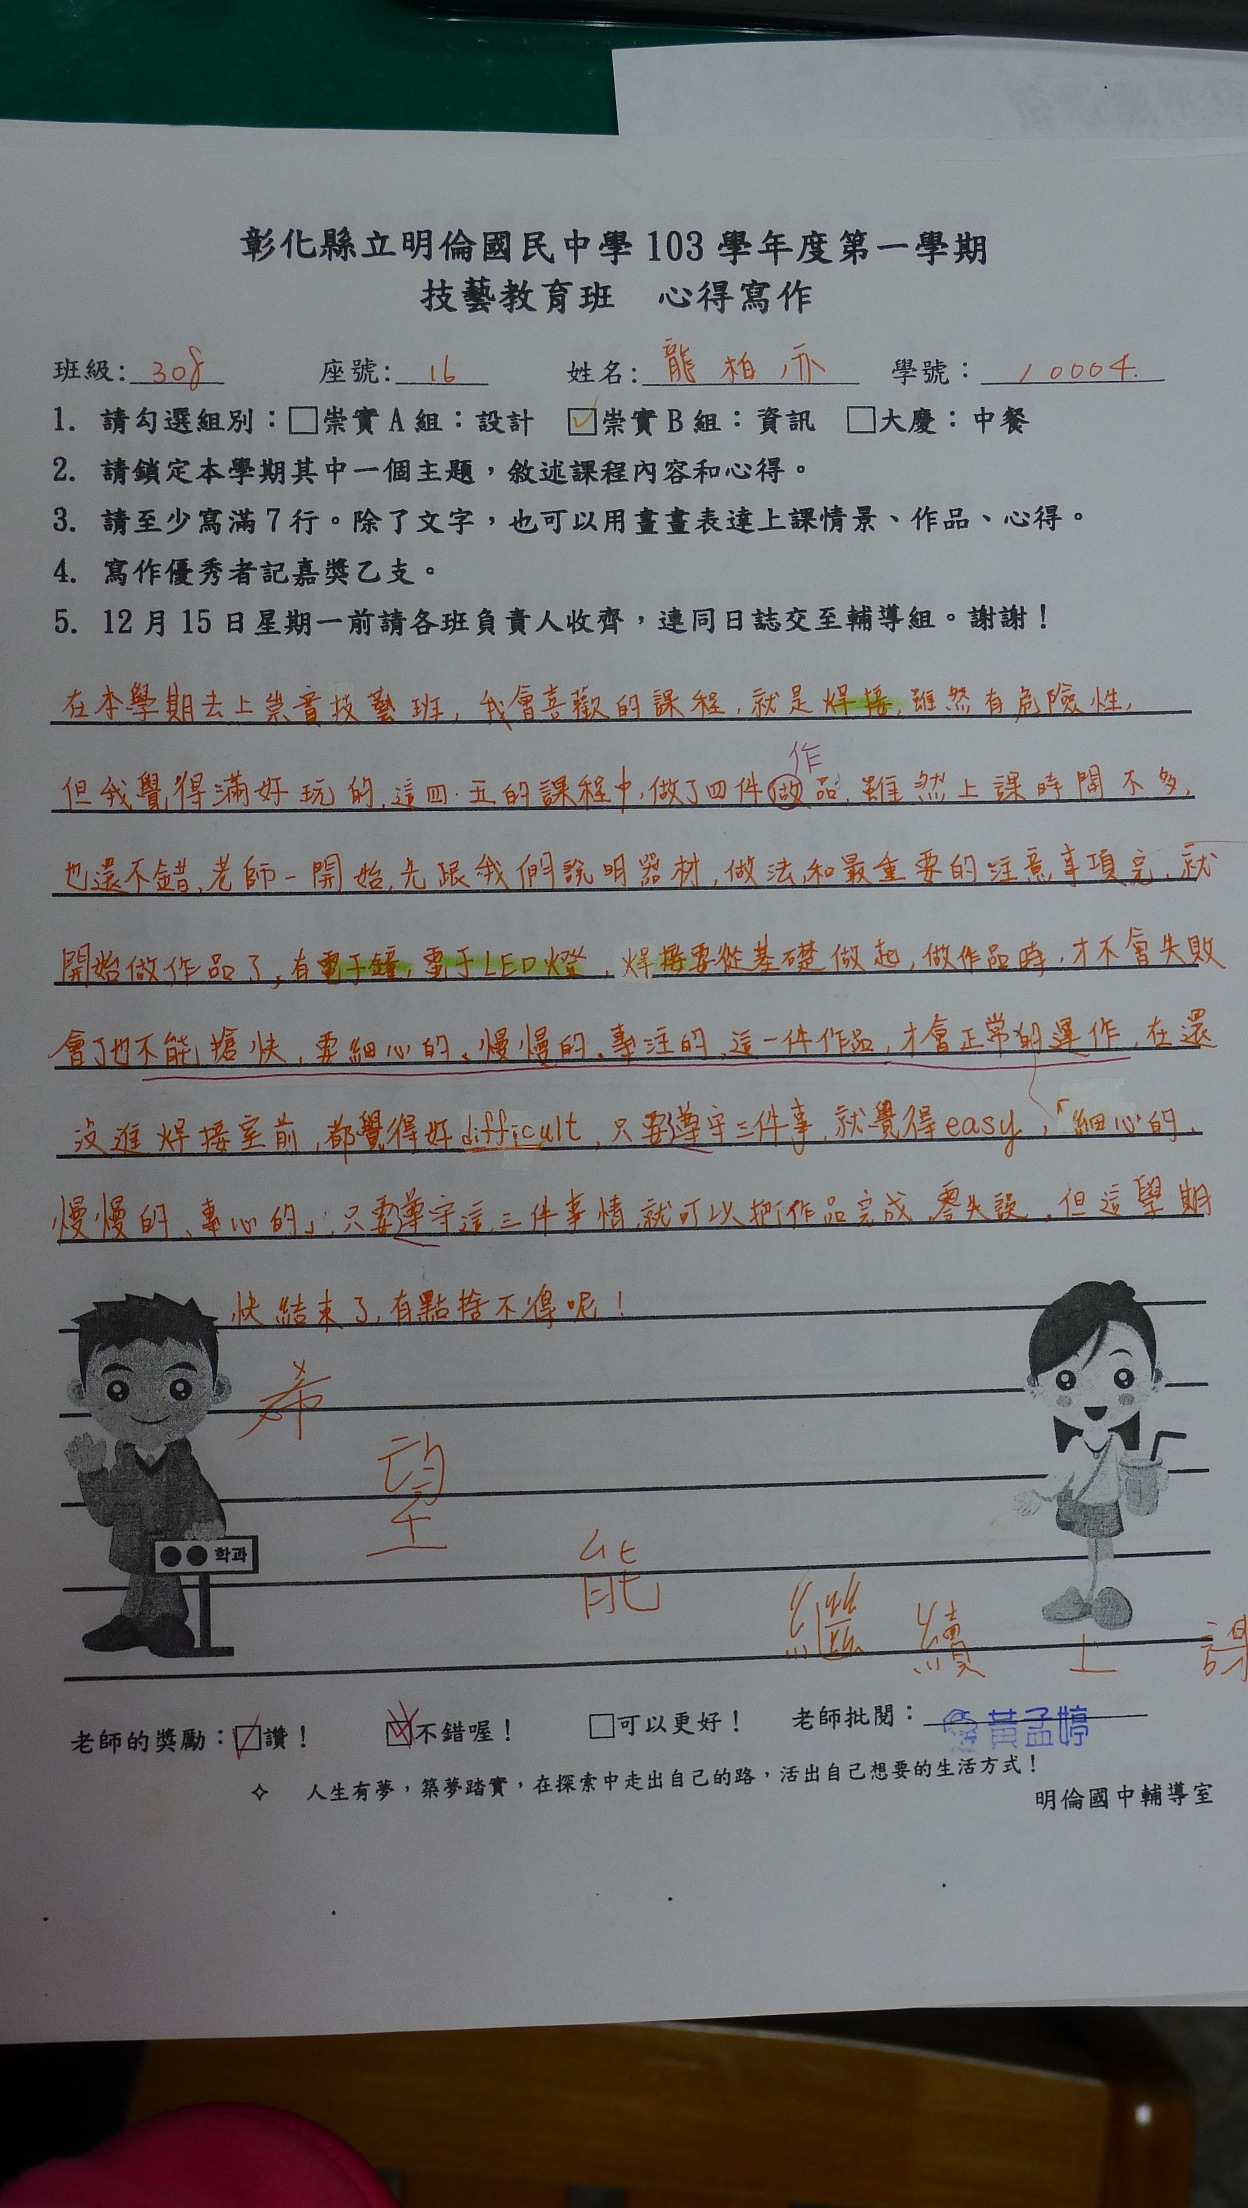 彰化縣立明倫國民中學 103 學年度第一學期
技藝教育班 心得寫作
班級: 308 座號: 16 姓名: 龍柏亦 學號: 10004.
1. 請勾選組別:□崇實 A 組:設計 ☑崇實 B 組:資訊 □大慶:中餐
2. 請鎖定本學期其中一個主題,敘述課程內容和心得。
3. 請至少寫滿 7 行。除了文字,也可以用畫畫表達上課情景、作品、心得。
4. 寫作優秀者記嘉獎乙支。
5. 12 月 15 日星期一前請各班負責人收齊,連同日誌交至輔導組。謝謝!
在本學期去上崇實技藝班,我會喜歡的課程,就是焊接,雖然有危險性,
作
但我覺得滿好玩的,這四.五的課程中,做了四件做品,雖然上課時間不多,
也還不錯,老師一開始,先跟我們說明器材,做法和最重要的注意事項完,就
開始做作品了,有電子鐘,電子LED燈,焊接要從基礎做起,做作品時,才不會失敗
會了也不能搶快,要細心的、慢慢的、專注的,這一件作品,才會正常的運作,在還
沒進焊接室前,都覺得好difficult,只要遵守三件事,就覺得easy,「細心的、
慢慢的、專心的」,只要遵守這三件事情,就可以把作品完成,零失誤,但這學期
快結束了,有點捨不得呢!
希
望
能
繼續上課
●● 학과
老師的獎勵:☑讚! ☑不錯喔! □可以更好! 老師批閱: 黃孟婷
✧ 人生有夢,築夢踏實,在探索中走出自己的路,活出自己想要的生活方式!
明倫國中輔導室